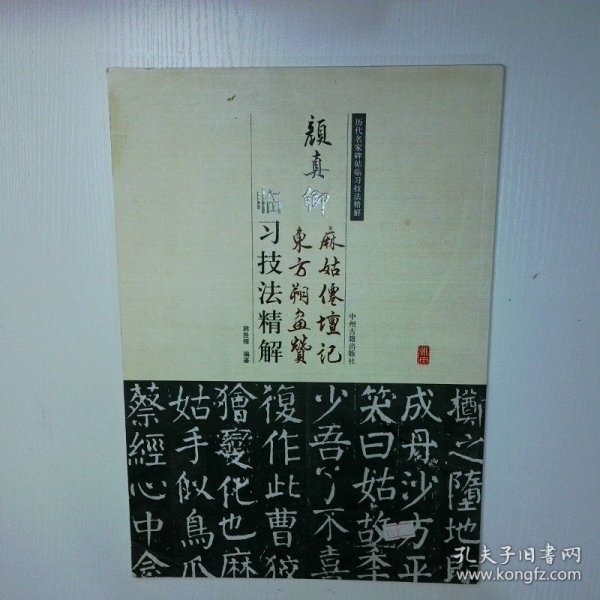 历代名家碑帖临习技法精解
颜真卿
麻姑僊壇記
東方朔畫贊
临习技法精解
韩胜辉 编著
中州古籍出版社
擲之墮地即
成丹沙方平
笑曰姑故年
少吾了不喜
復作此曹狡
獪變化也麻
姑手似鳥爪
蔡經心中念
孔夫子旧书网
www.kongfz.com